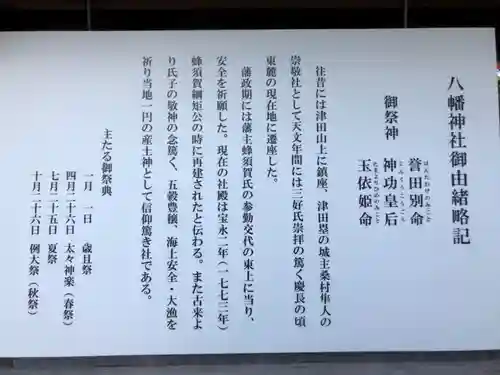 八幡神社御由緒略記
御祭神　誉田別命
ほんだわけのみこと
神功皇后
じんぐうこうごう
玉依姫命
たまよりひめのみこと
往昔には津田山上に鎮座、津田塁の城主桑村隼人の
崇敬社として天文年間には三好氏崇拝の篤く慶長の頃
東麓の現在地に遷座した。
藩政期には藩主蜂須賀氏の参勤交代の東上に当り、
安全を祈願した。現在の社殿は宝永二年(一七七三年)
蜂須賀綱矩公の時に再建されたと伝わる。また古来よ
り氏子の敬神の念篤く、五穀豊穣、海上安全・大漁を
祈り当地一円の産土神として信仰篤き社である。
主たる御祭典
一月　一日　歳旦祭
四月二十六日　太々神楽（春祭）
七月二十五日　夏祭
十月二十六日　例大祭（秋祭）